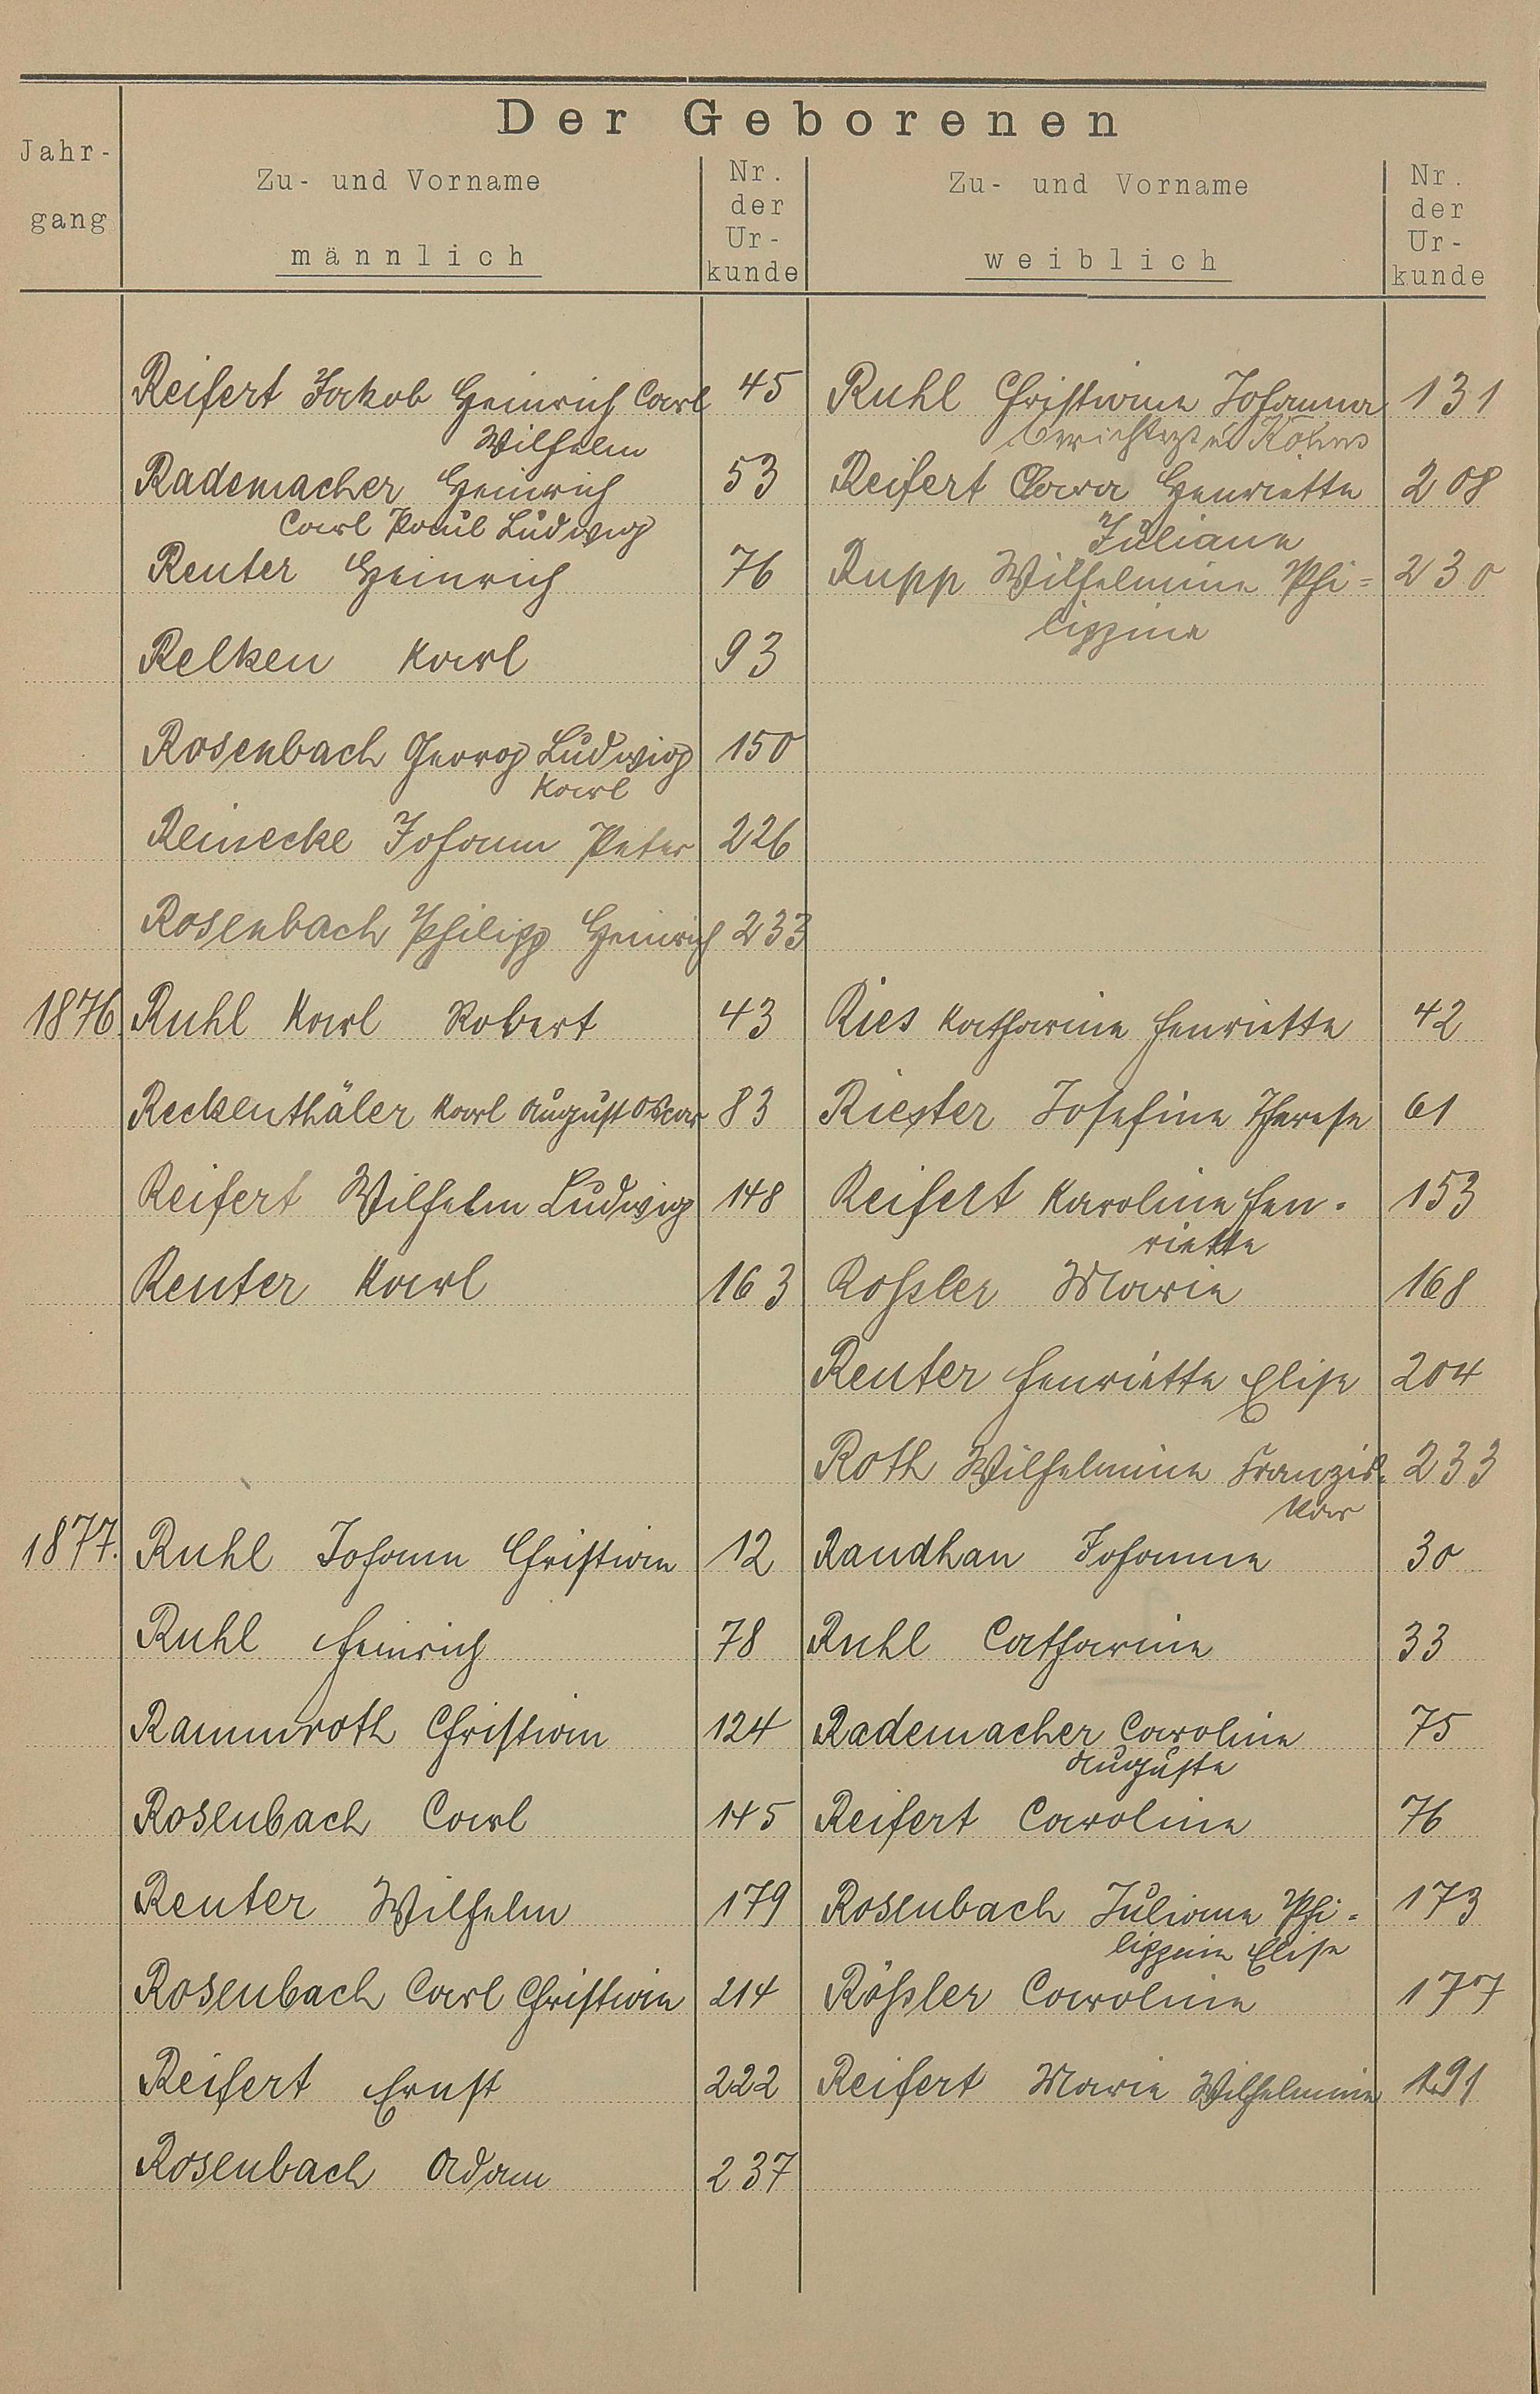 Der Geborenen
Jahr-
gang
Zu- und Vorname
männlich
Nr.
der
Ur-
kunde
Zu- und Vorname
weiblich
Nr.
der
Ur-
kunde
Reifert Jakob Heinrich Carl 45 Ruhl Christiane Johanna 131
Wilhelm
Rademacher Heinrich 53 Reifert Clara Henriette 208
Carl Paul Ludwig Juliane
Renter Heinrich 76 Rupp Wilhelmine Phi= 230
lippine
Relken Karl 93
Rosenbach Georg Ludwig 150
Karl
Reinecke Johann Peter 226
Rosenbach Philipp Heinrich 233
1876. Ruhl Karl Robert 43 Ries Katharine Henriette 42
Reckenthäler Karl August Oscar 83 Riester Josefine Therese 61
Reifert Wilhelm Ludwig 148 Reifert Karoline Hen- 153
riette
Renter Karl 163 Roßler Marie 168
Renter Henriette Elise 204
Roth Wilhelmine Franzis- 233
ka
1877. Ruhl Johann Christian 12 Randhan Johanne 30
Ruhl Heinrich 78 Ruhl Catharine 33
Rammroth Christian 124 Rademacher Caroline 75
Auguste
Rosenbach Carl 145 Reifert Caroline 76
Renter Wilhelm 179 Rosenbach Juliane Phi= 173
lippine Elise
Rosenbach Carl Christian 214 Rößler Caroline 177
Reifert Ernst 222 Reifert Marie Wilhelmine 191
Rosenbach Adam 237